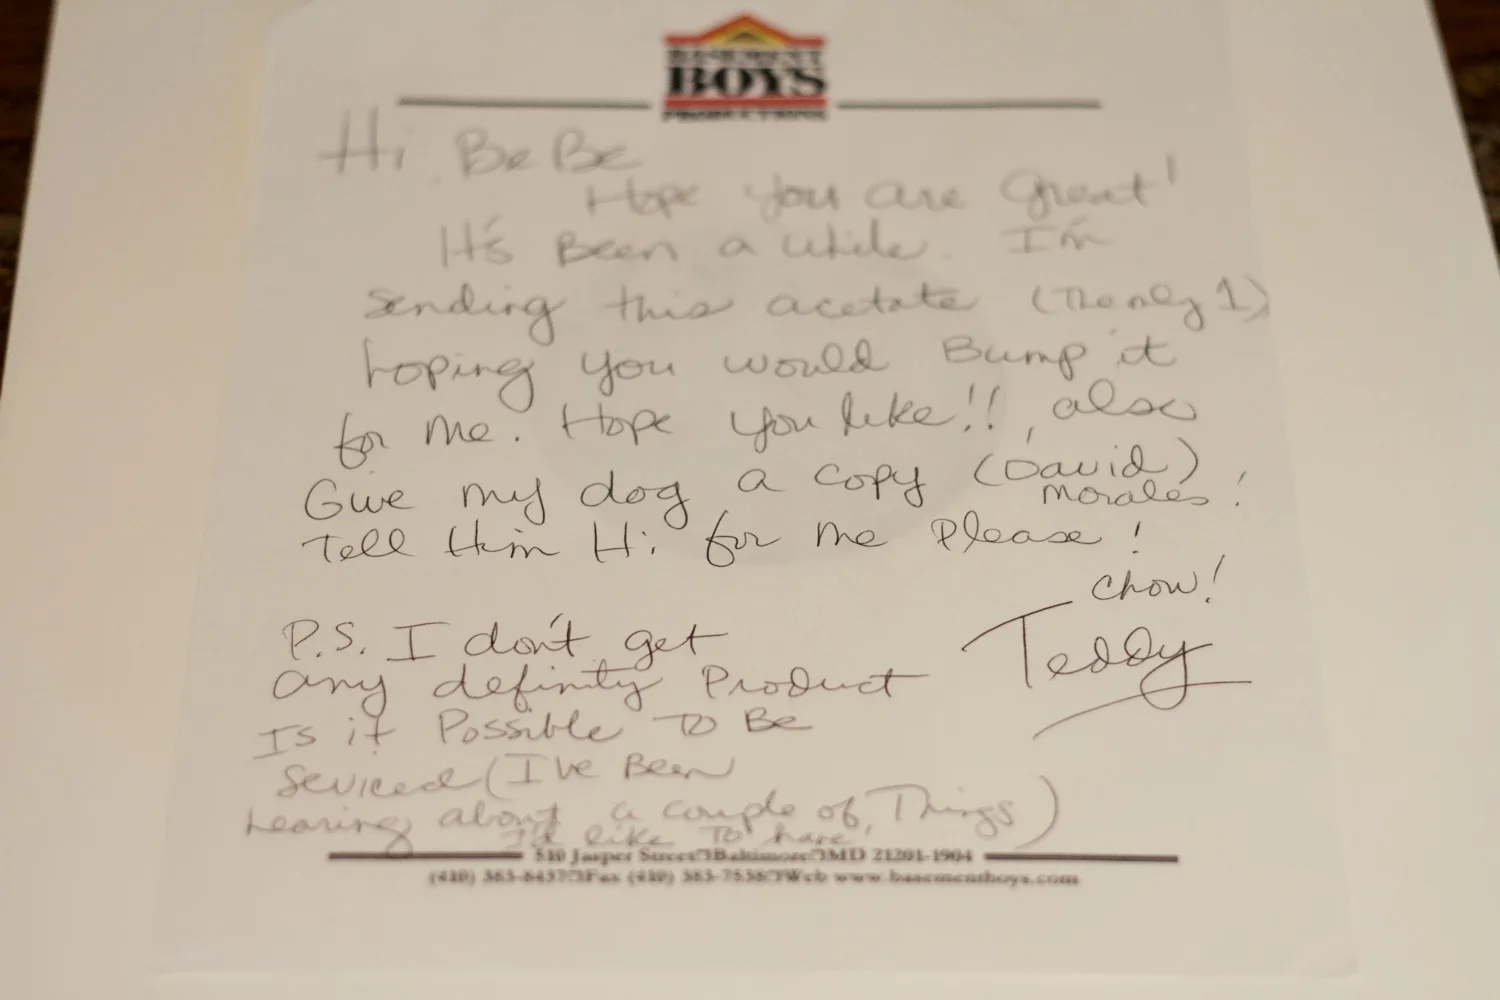 BASEMENT
BOYS
PRODUCTIONS
Hi BeBe
Hope you are Great!
It's Been a while. I'm
sending this acetate (The only 1)
hoping you would Bump it
for me. Hope you like!!, also
Give my dog a copy (David)
morales!
Tell Him Hi for me Please!
Chow!
Teddy
P.S. I don't get
any definity Product
Is it Possible To Be
Seviced (I've Been
hearing about a couple of Things)
I'd like To have
510 Jasper Street Baltimore MD 21201-1904
Fax (410) 383- Web www.basementboys.com